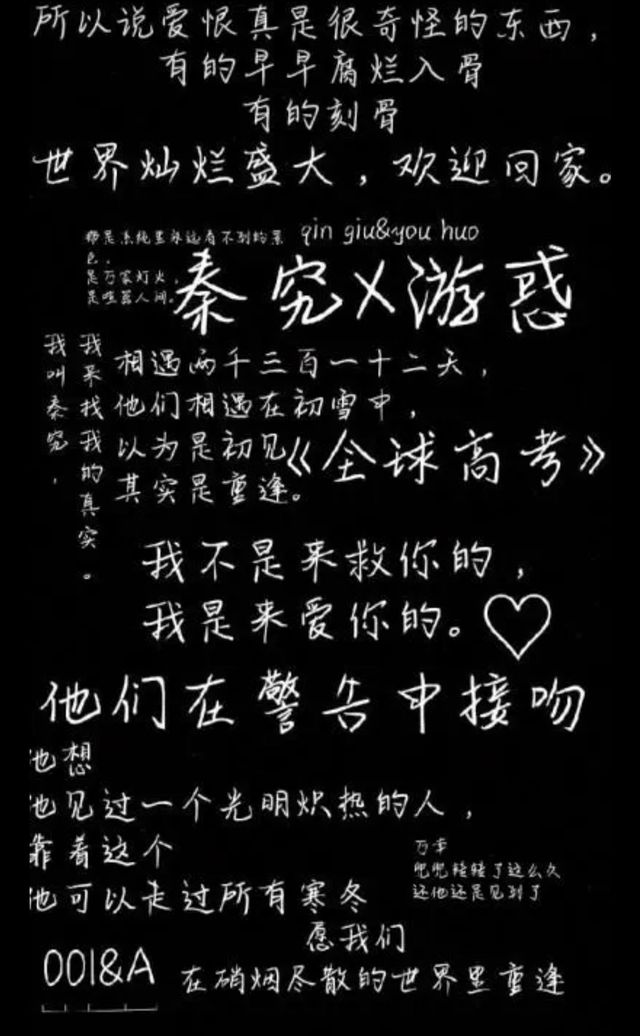 所以说爱恨真是很奇怪的东西，
有的早早腐烂入骨
有的刻骨
世界灿烂盛大，欢迎回家。
那是系统里永远看不到的景
色，
是万家灯火，
是喧嚣人间。
qin giu&you huo
秦究X游惑
我来找我的真实。
我叫秦究，
相遇两千三百一十二天，
他们相遇在初雪中，
以为是初见
其实是重逢。
《全球高考》
我不是来救你的，
我是来爱你的。
他们在警告中接吻
他想
他见过一个光明炽热的人，
靠着这个
他可以走过所有寒冬
万幸
兜兜转转了这么久
还他还是见到了
愿我们
001&A
在硝烟尽散的世界里重逢